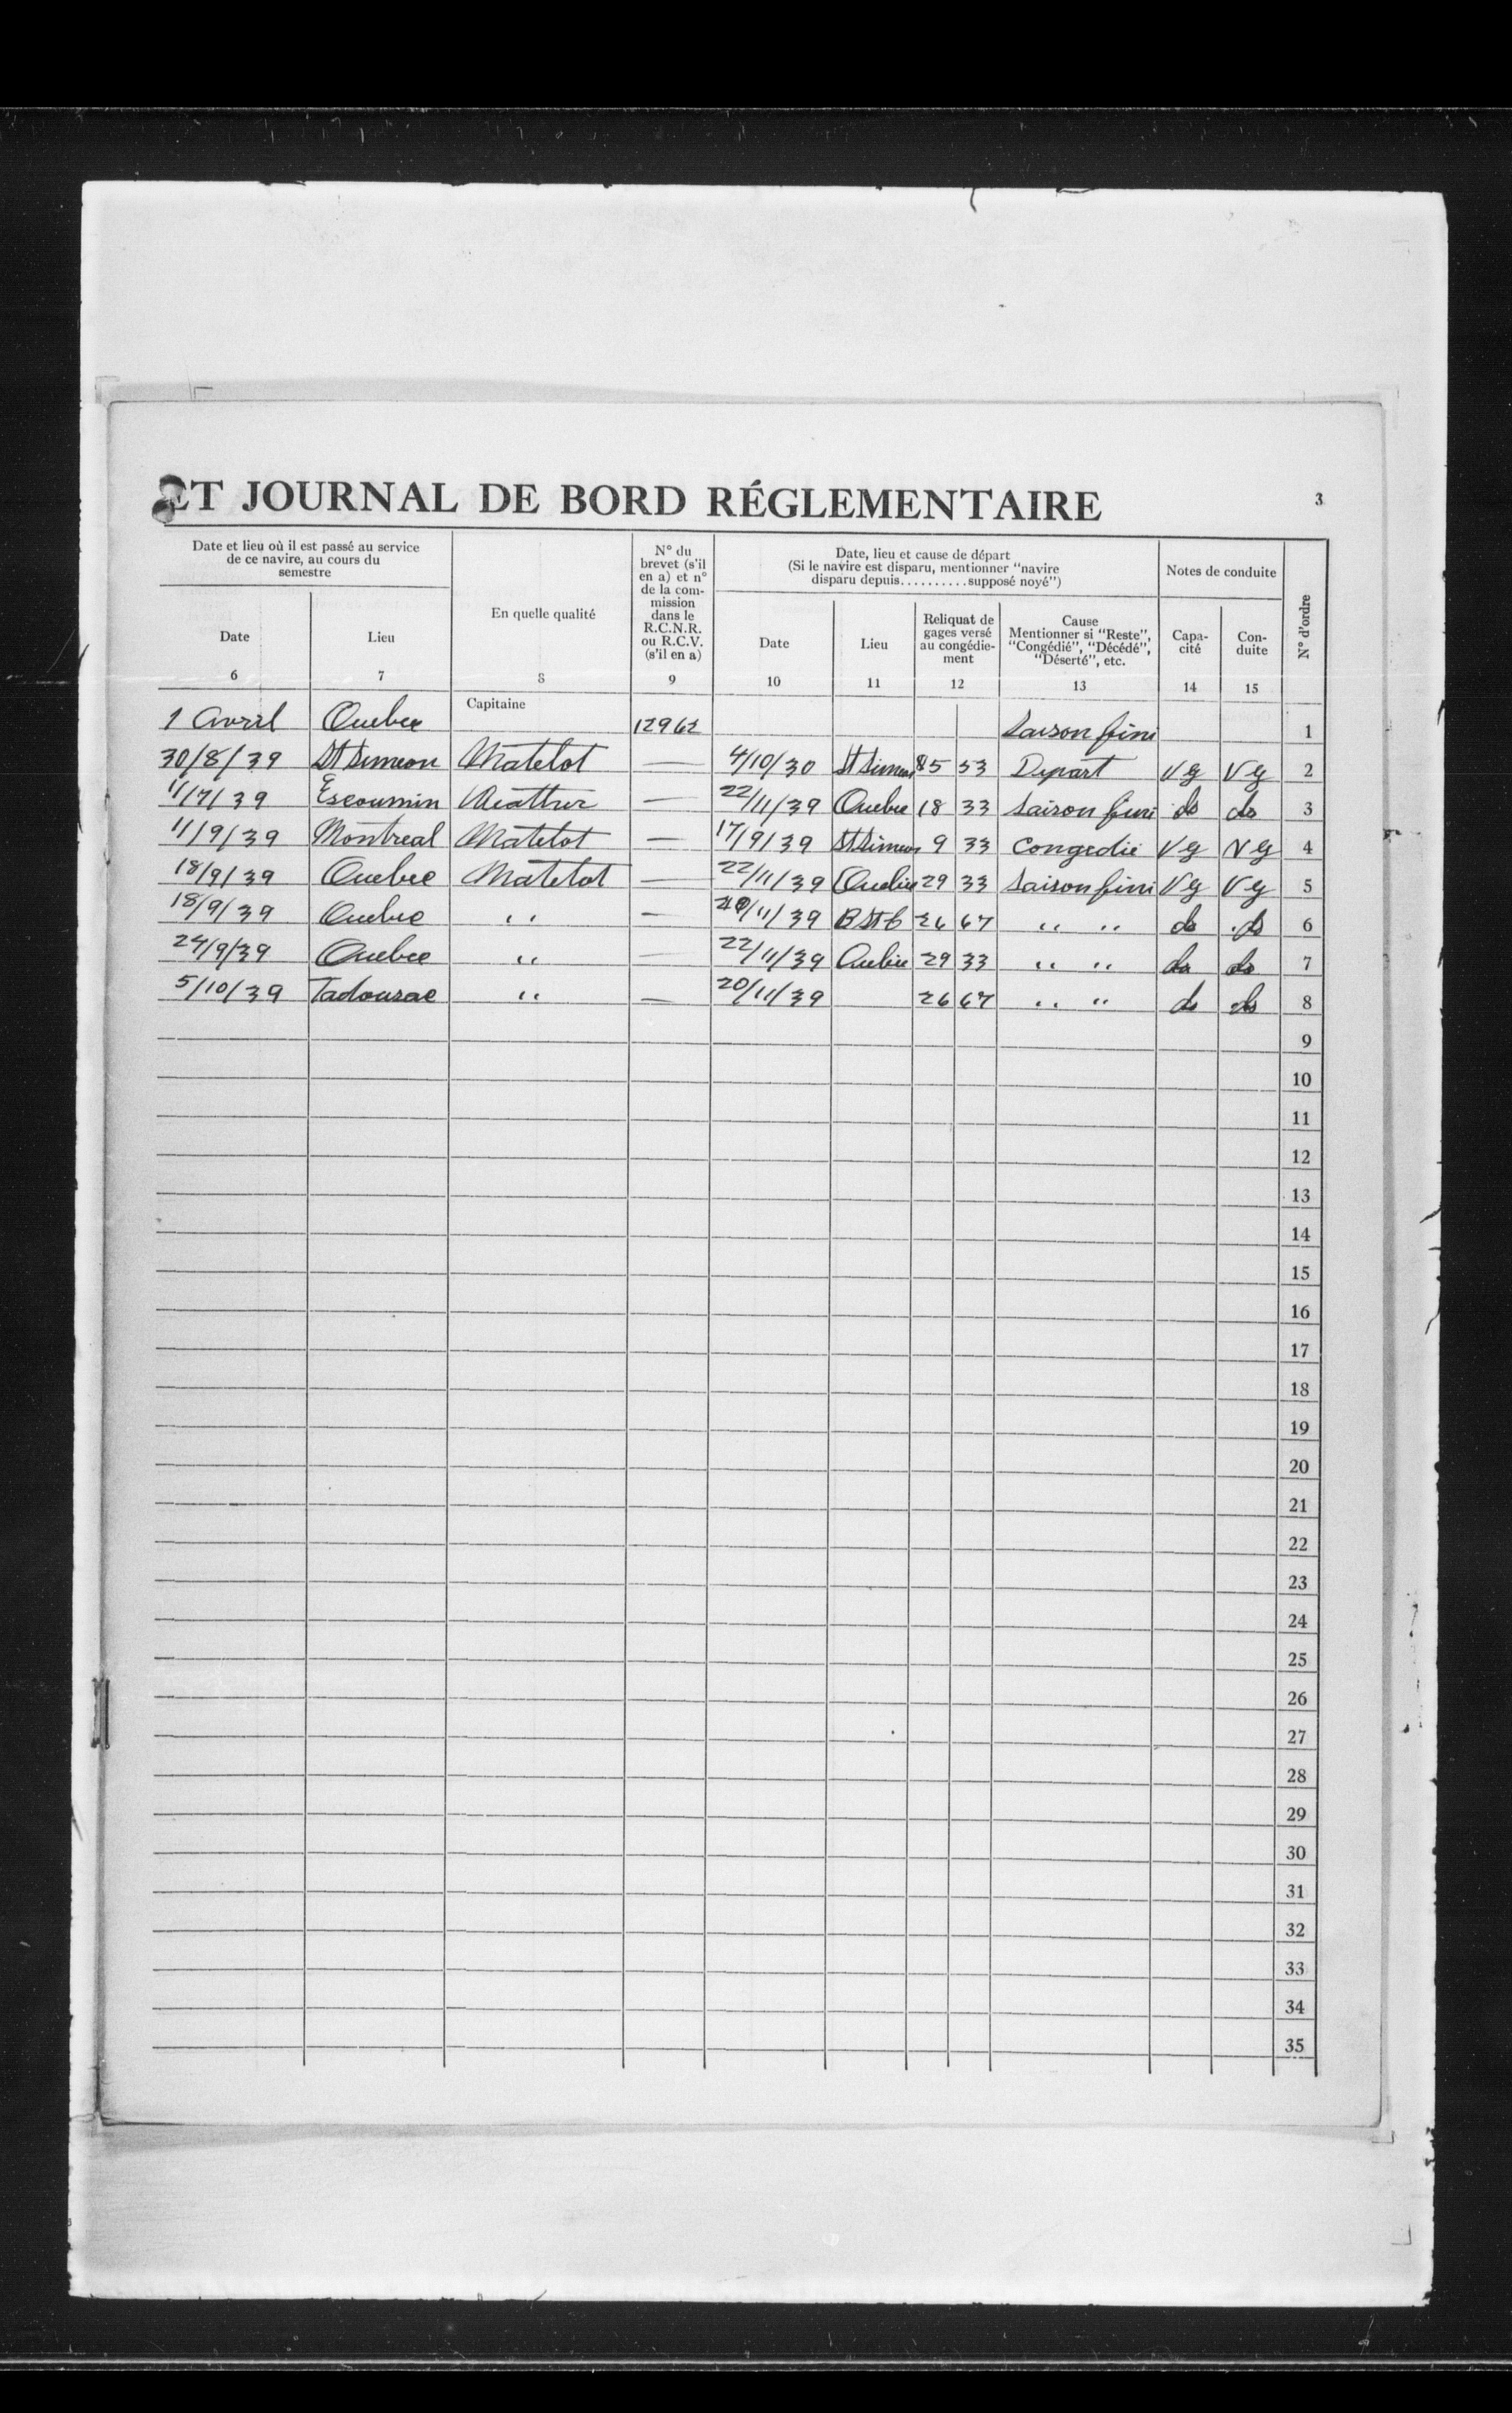 ET JOURNAL DE BORD RÉGLEMENTAIRE 3
Date et lieu où il est passé au service
de ce navire, au cours du
semestre
Date
6
Lieu
7
En quelle qualité
8
N° du
brevet (s'il
en a) et n°
de la com-
mission
dans le
R.C.N.R.
ou R.C.V.
(s'il en a)
9
Date, lieu et cause de départ
(Si le navire est disparu, mentionner "navire
disparu depuis..........supposé noyé")
Date
10
Lieu
11
Reliquat de
gages versé
au congédie-
ment
12
Cause
Mentionner si "Reste",
"Congédié", "Décédé",
"Déserté", etc.
13
Notes de conduite
Capa-
cité
14
Con-
duite
15
N° d'ordre
1 Avril Quebec Capitaine 12962 Saison fini 1
30/8/39 St Simeon Matelot — 4/10/30 St Simeon 85 53 Depart Vg Vg 2
11/7/39 Escoumin — 22/11/39 Quebec 18 33 Saison fini do do 3
11/9/39 Montreal Matelot — 17/9/39 St Simeon 9 33 Congedie Vg Vg 4
18/9/39 Quebec Matelot — 22/11/39 Quebec 29 33 Saison fini Vg Vg 5
18/9/39 Quebec " — /11/39 26 67 " " do do 6
24/9/39 Quebec " — 22/11/39 Quebec 29 33 " " do do 7
5/10/39 Tadousac " — 20/11/39 26 67 " " do do 8
9
10
11
12
13
14
15
16
17
18
19
20
21
22
23
24
25
26
27
28
29
30
31
32
33
34
35